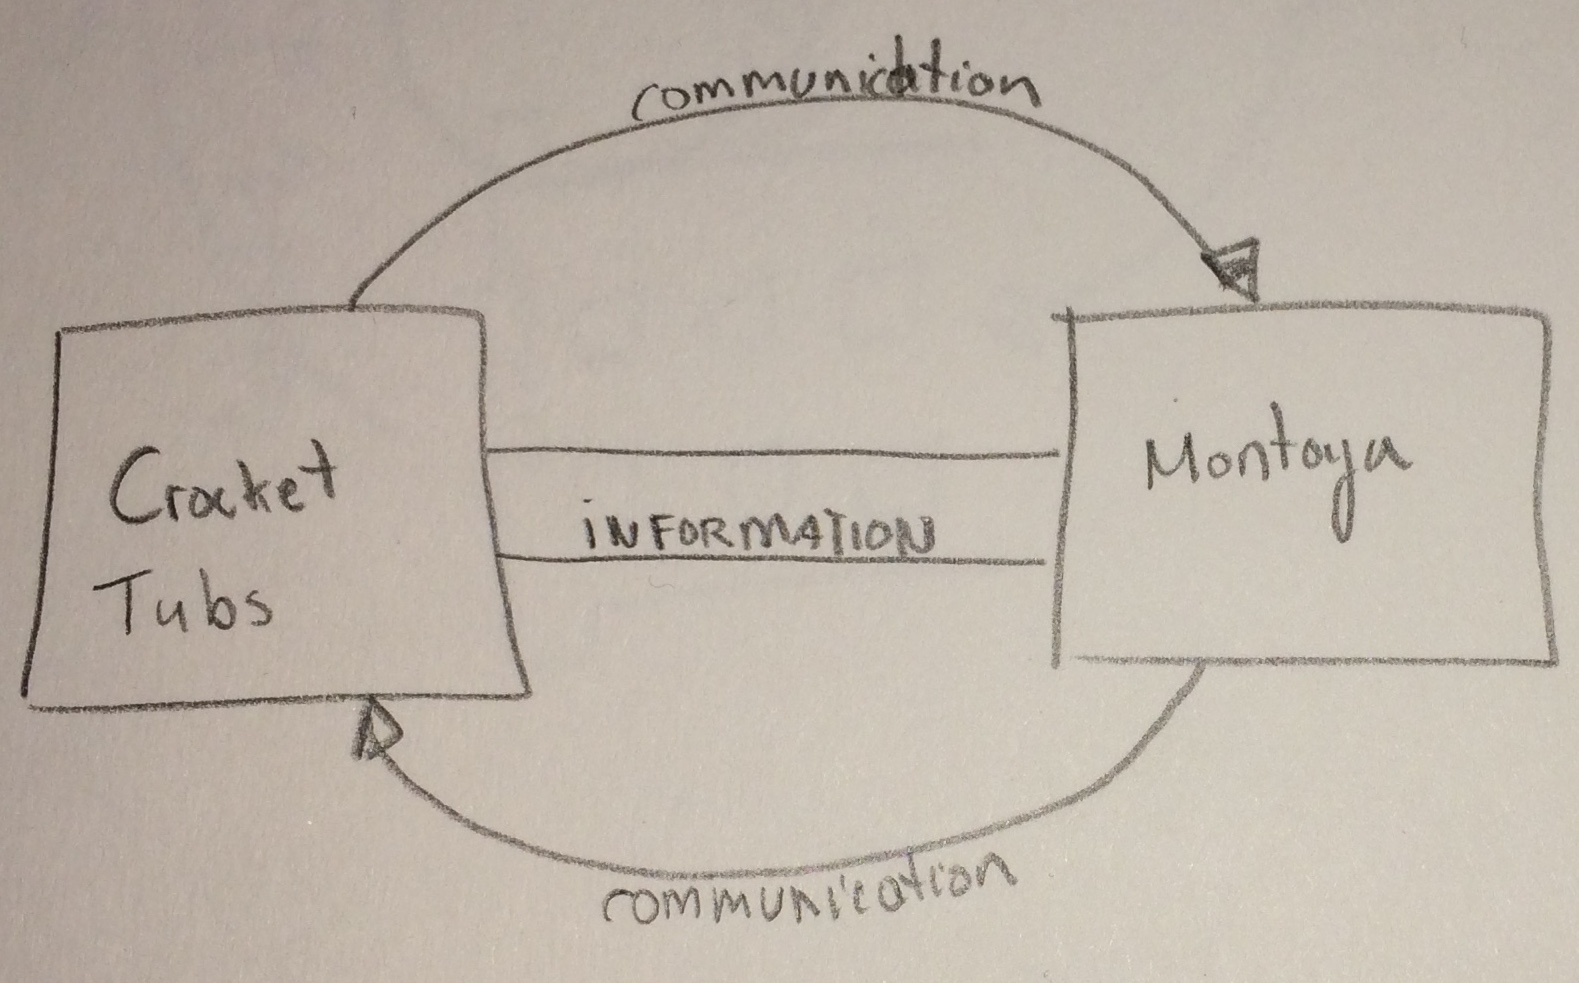 communication
Crocket
Tubs
iNFORMATION
Montoya
communication